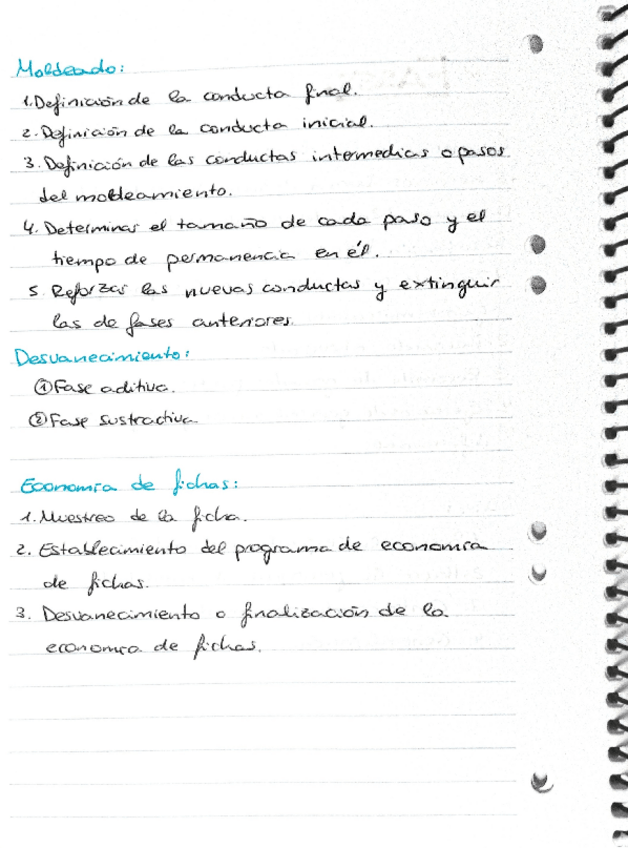 Moldeado:
1. Definición de la conducta final.
2. Definición de la conducta inicial.
3. Definición de las conductas intermedias o pasos
del moldeamiento.
4. Determinar el tamaño de cada paso y el
tiempo de permanencia en él.
5. Reforzar las nuevas conductas y extinguir
las de fases anteriores.
Desvanecimiento:
① Fase aditiva.
② Fase sustractiva
Economía de fichas:
1. Muestreo de la ficha.
2. Establecimiento del programa de economía
de fichas.
3. Desvanecimiento o finalización de la
economía de fichas.